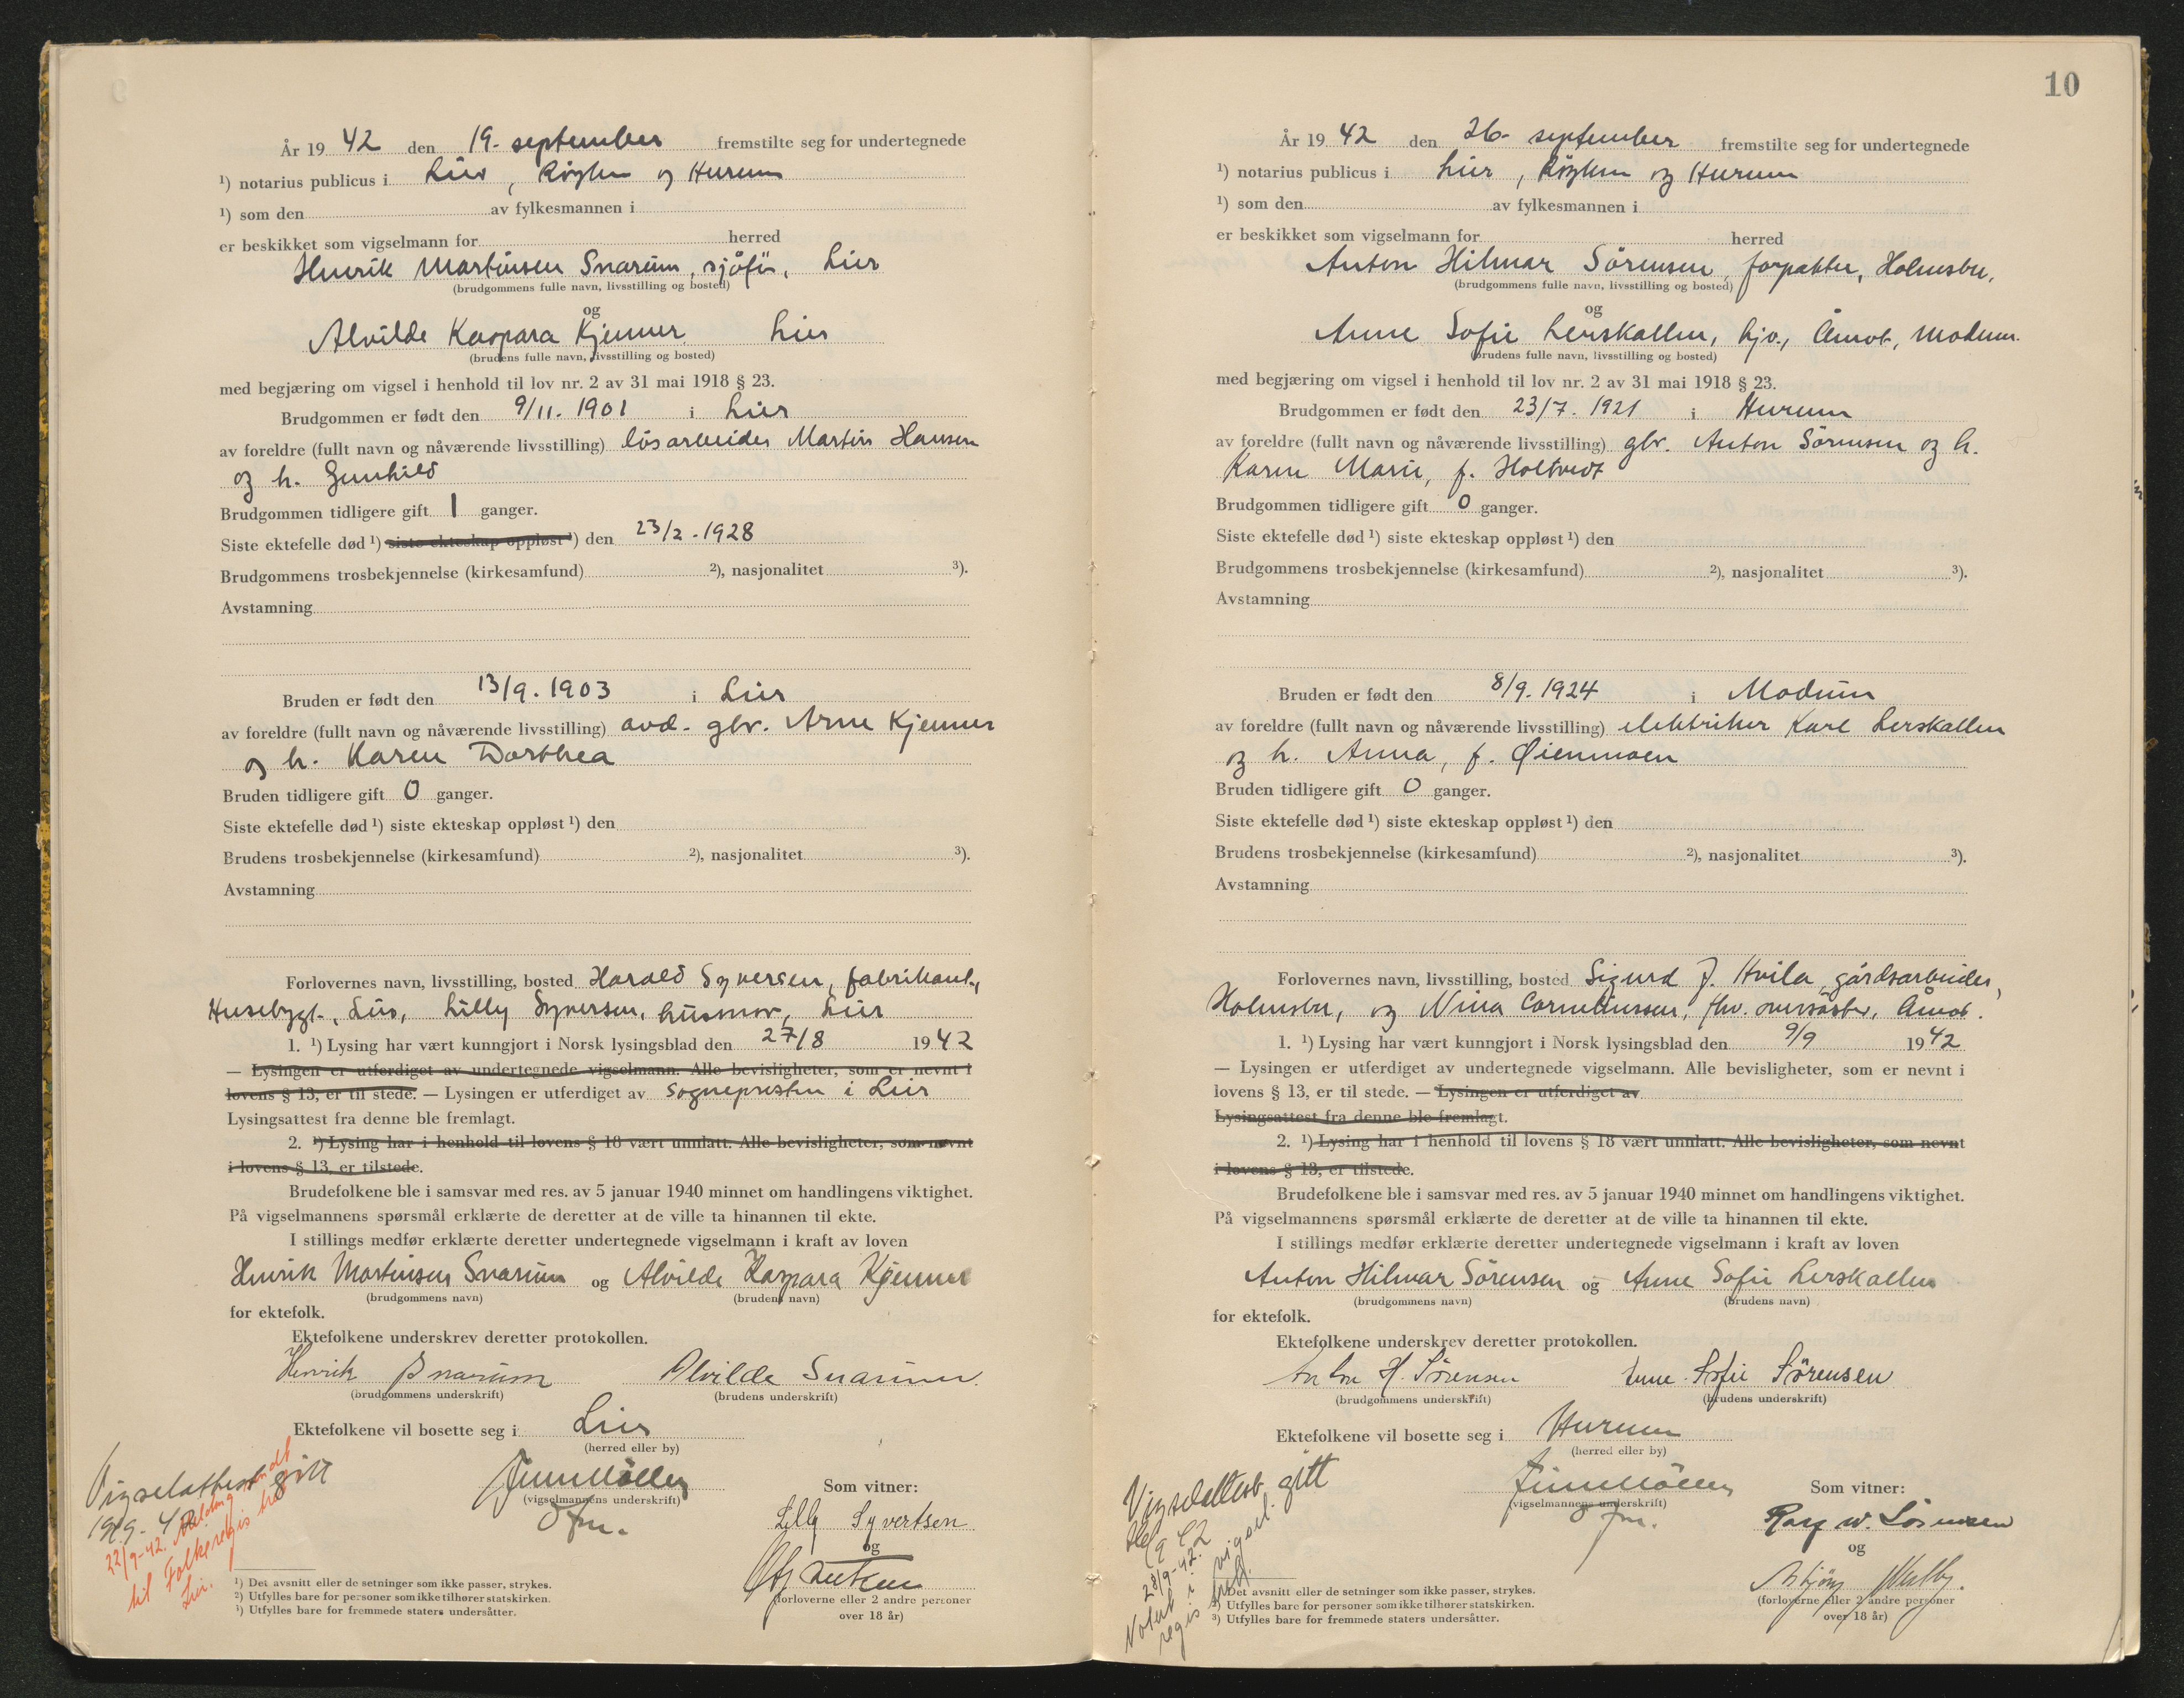 År 19 42 den 19. september fremstilte seg for undertegnede
¹) notarius publicus i Lier, Røyken og Hurum
¹) som den av fylkesmannen i
er beskikket som vigselmann for herred
Henrik Martinsen Snarum, sjåfør, Lier
(brudgommens fulle navn, livsstilling og bosted)
og
Alvilde Kaspara Kjenner Lier
(brudens fulle navn, livsstilling og bosted)
med begjæring om vigsel i henhold til lov nr. 2 av 31 mai 1918 § 23.
Brudgommen er født den 9/11. 1901 i Lier
av foreldre (fullt navn og nåværende livsstilling) løsarbeider Martin Hansen
og h. Gunhild
Brudgommen tidligere gift 1 ganger.
Siste ektefelle død ¹) siste ekteskap oppløst ¹) den 23/2. 1928
Brudgommens trosbekjennelse (kirkesamfund) ²), nasjonalitet ³).
Avstamning
Bruden er født den 13/9. 1903 i Lier
av foreldre (fullt navn og nåværende livsstilling) avd. gbr. Arne Kjenner
og h. Karen Dorthea
Bruden tidligere gift 0 ganger.
Siste ektefelle død ¹) siste ekteskap oppløst ¹) den
Brudens trosbekjennelse (kirkesamfund) ²), nasjonalitet ³).
Avstamning
Forlovernes navn, livsstilling, bosted Harald Syversen, fabrikant,
Husebygt., Lier, Lilly Syversen, husmor, Lier
1. ¹) Lysing har vært kunngjort i Norsk lysingsblad den 27/8 19 42
— Lysingen er utferdiget av undertegnede vigselmann. Alle bevisligheter, som er nevnt i
lovens § 13, er til stede. — Lysingen er utferdiget av Sognepresten i Lier
Lysingsattest fra denne ble fremlagt.
2. ¹) Lysing har i henhold til lovens § 18 vært unnlatt. Alle bevisligheter, som nevnt
i lovens § 13, er tilstede.
Brudefolkene ble i samsvar med res. av 5 januar 1940 minnet om handlingens viktighet.
På vigselmannens spørsmål erklærte de deretter at de ville ta hinannen til ekte.
I stillings medfør erklærte deretter undertegnede vigselmann i kraft av loven
Henrik Martinsen Snarum og Alvilde Kaspara Kjenner
(brudgommens navn) (brudens navn)
for ektefolk.
Ektefolkene underskrev deretter protokollen.
Henrik Snarum Alvilde Snarum.
(brudgommens underskrift) (brudens underskrift)
Ektefolkene vil bosette seg i Lier
(herred eller by)
Vigselattest gitt
19/9-42
22/9-42. Melding sendt
til Folkeregistret
Lier.
(vigselmannens underskrift)
Som vitner:
Lilly Syvertsen
og
(forloverne eller 2 andre personer
over 18 år)
¹) Det avsnitt eller de setninger som ikke passer, strykes.
²) Utfylles bare for personer som ikke tilhører statskirken.
³) Utfylles bare for fremmede staters undersåtter.
10
År 19 42 den 26. september fremstilte seg for undertegnede
¹) notarius publicus i Lier, Røyken og Hurum
¹) som den av fylkesmannen i
er beskikket som vigselmann for herred
Anton Hilmar Sörensen, forpakter, Holmsbu,
(brudgommens fulle navn, livsstilling og bosted)
og
Anne Sofie Lerskallen, hjv., Åmot, Modum.
(brudens fulle navn, livsstilling og bosted)
med begjæring om vigsel i henhold til lov nr. 2 av 31 mai 1918 § 23.
Brudgommen er født den 23/7. 1921 i Hurum
av foreldre (fullt navn og nåværende livsstilling) gbr. Anton Sörensen og h.
Karen Marie, f. Holtvedt
Brudgommen tidligere gift 0 ganger.
Siste ektefelle død ¹) siste ekteskap oppløst ¹) den
Brudgommens trosbekjennelse (kirkesamfund) ²), nasjonalitet ³).
Avstamning
Bruden er født den 8/9. 1924 i Modum
av foreldre (fullt navn og nåværende livsstilling) elektriker Karl Lerskallen
og h. Anna, f. Øienmoen
Bruden tidligere gift 0 ganger.
Siste ektefelle død ¹) siste ekteskap oppløst ¹) den
Brudens trosbekjennelse (kirkesamfund) ²), nasjonalitet ³).
Avstamning
Forlovernes navn, livsstilling, bosted Sigurd J. Hvila, gårdsarbeider,
Holmsbu, og Nina Corneliussen, fhv. oversöster, Åmot.
1. ¹) Lysing har vært kunngjort i Norsk lysingsblad den 9/9 19 42
— Lysingen er utferdiget av undertegnede vigselmann. Alle bevisligheter, som er nevnt i
lovens § 13, er til stede. — Lysingen er utferdiget av
Lysingsattest fra denne ble fremlagt.
2. ¹) Lysing har i henhold til lovens § 18 vært unnlatt. Alle bevisligheter, som nevnt
i lovens § 13, er tilstede.
Brudefolkene ble i samsvar med res. av 5 januar 1940 minnet om handlingens viktighet.
På vigselmannens spørsmål erklærte de deretter at de ville ta hinannen til ekte.
I stillings medfør erklærte deretter undertegnede vigselmann i kraft av loven
Anton Hilmar Sörensen og Anne Sofie Lerskallen
(brudgommens navn) (brudens navn)
for ektefolk.
Ektefolkene underskrev deretter protokollen.
Anton H. Sörensen Anne Sofie Sörensen
(brudgommens underskrift) (brudens underskrift)
Ektefolkene vil bosette seg i Hurum
(herred eller by)
Vigselattest gitt
26/9 42
28/9-42.
Notert i vigsel
regist
(vigselmannens underskrift)
Som vitner:
og
(forloverne eller 2 andre personer
over 18 år)
¹) Det avsnitt eller de setninger som ikke passer, strykes.
²) Utfylles bare for personer som ikke tilhører statskirken.
³) Utfylles bare for fremmede staters undersåtter.